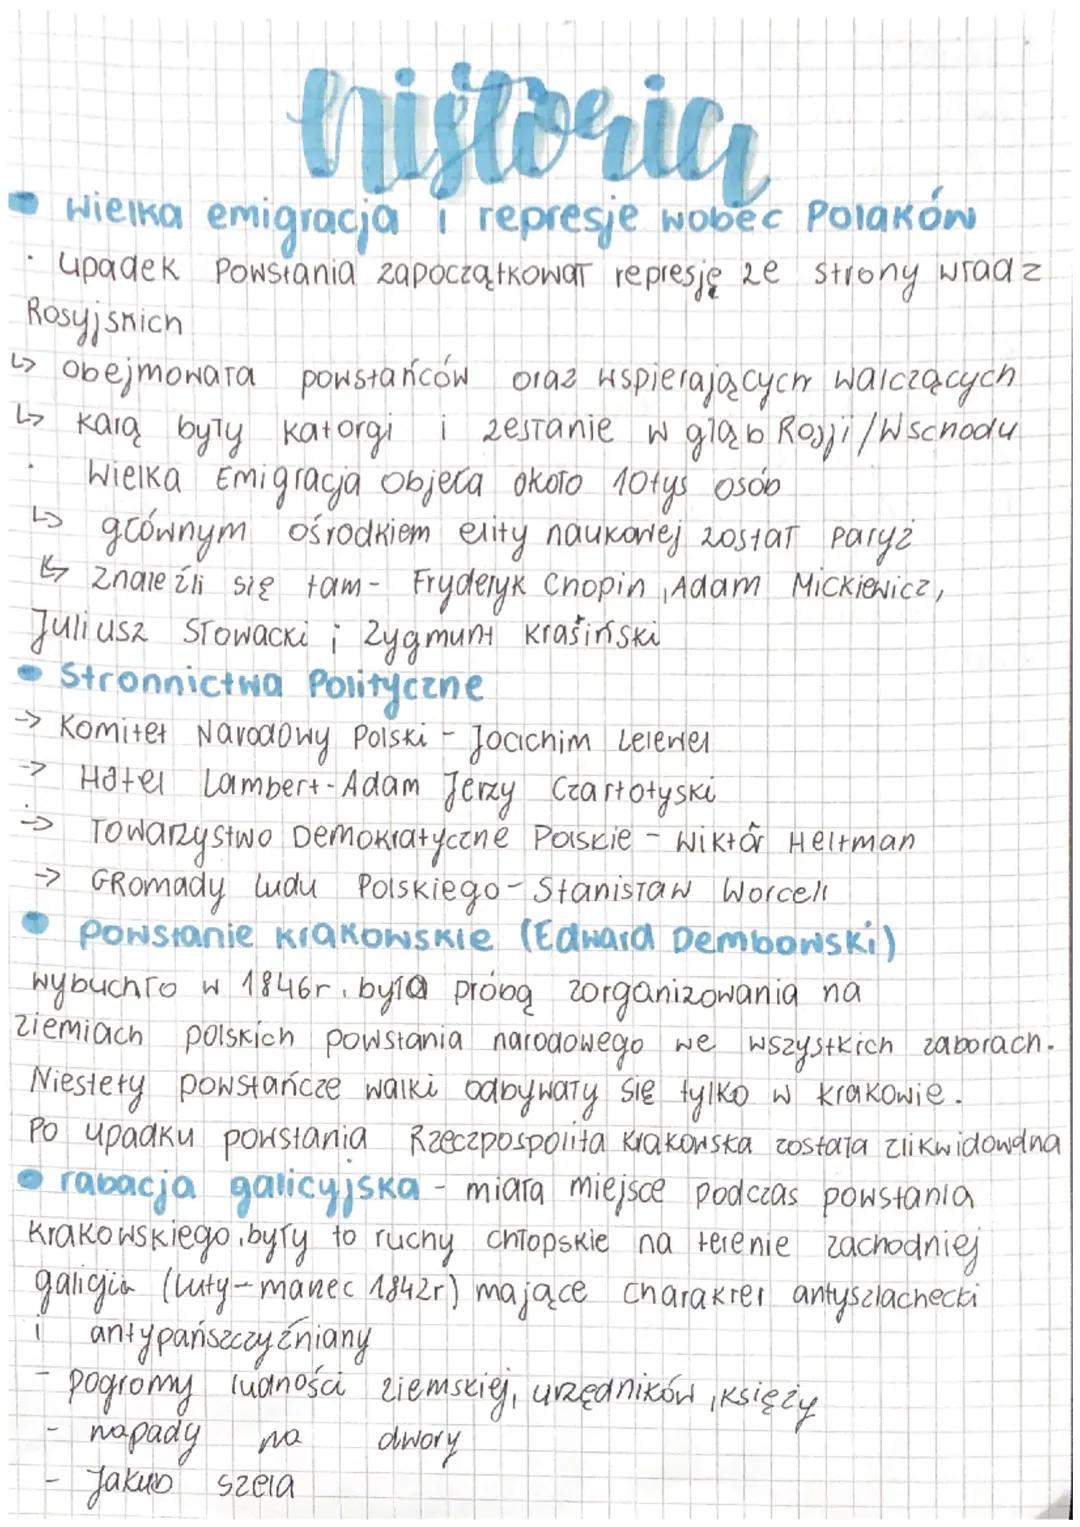 historia
• Wielka emigracja i represje wobec Polaków
· upadek Powstania zapoczątkował represję ze strony władz
Rosyjskich
↳ obejmowała powstańców oraz wspierających walczących
↳ karą były katorgi i zesłanie w głąb Rosji/Wschodu
· Wielka Emigracja objęła około 10tys osób
↳ głównym ośrodkiem elity naukowej został paryż
↳ znaleźli się tam - Fryderyk Chopin, Adam Mickiewicz,
Juliusz Słowacki i Zygmunt Krasiński
• Stronnictwa Polityczne
-> Komitet Narodowy Polski - Joachim Lelewel
-> Hotel Lambert - Adam Jerzy Czartotyski
-> Towarzystwo Demokratyczne Polskie - Wiktor Heltman
-> GRomady Ludu Polskiego - Stanisław Worcell
• Powstanie krakowskie (Edward Dembowski)
wybuchło w 1846r. była próbą zorganizowania na
ziemiach polskich powstania narodowego we wszystkich zaborach.
Niestety powstańcze walki odbywały się tylko w krakowie.
Po upadku powstania Rzeczpospolita Krakowska została zlikwidowana
• rabacja galicyjska - miała miejsce podczas powstania
krakowskiego, były to ruchy chłopskie na terenie zachodniej
galigii (luty - marzec 1842r) mające charakter antyszlachecki
i antypańszczyźniany
- pogromy ludności ziemskiej, urzędników, księży
- napady na dwory
- Jakub Szela